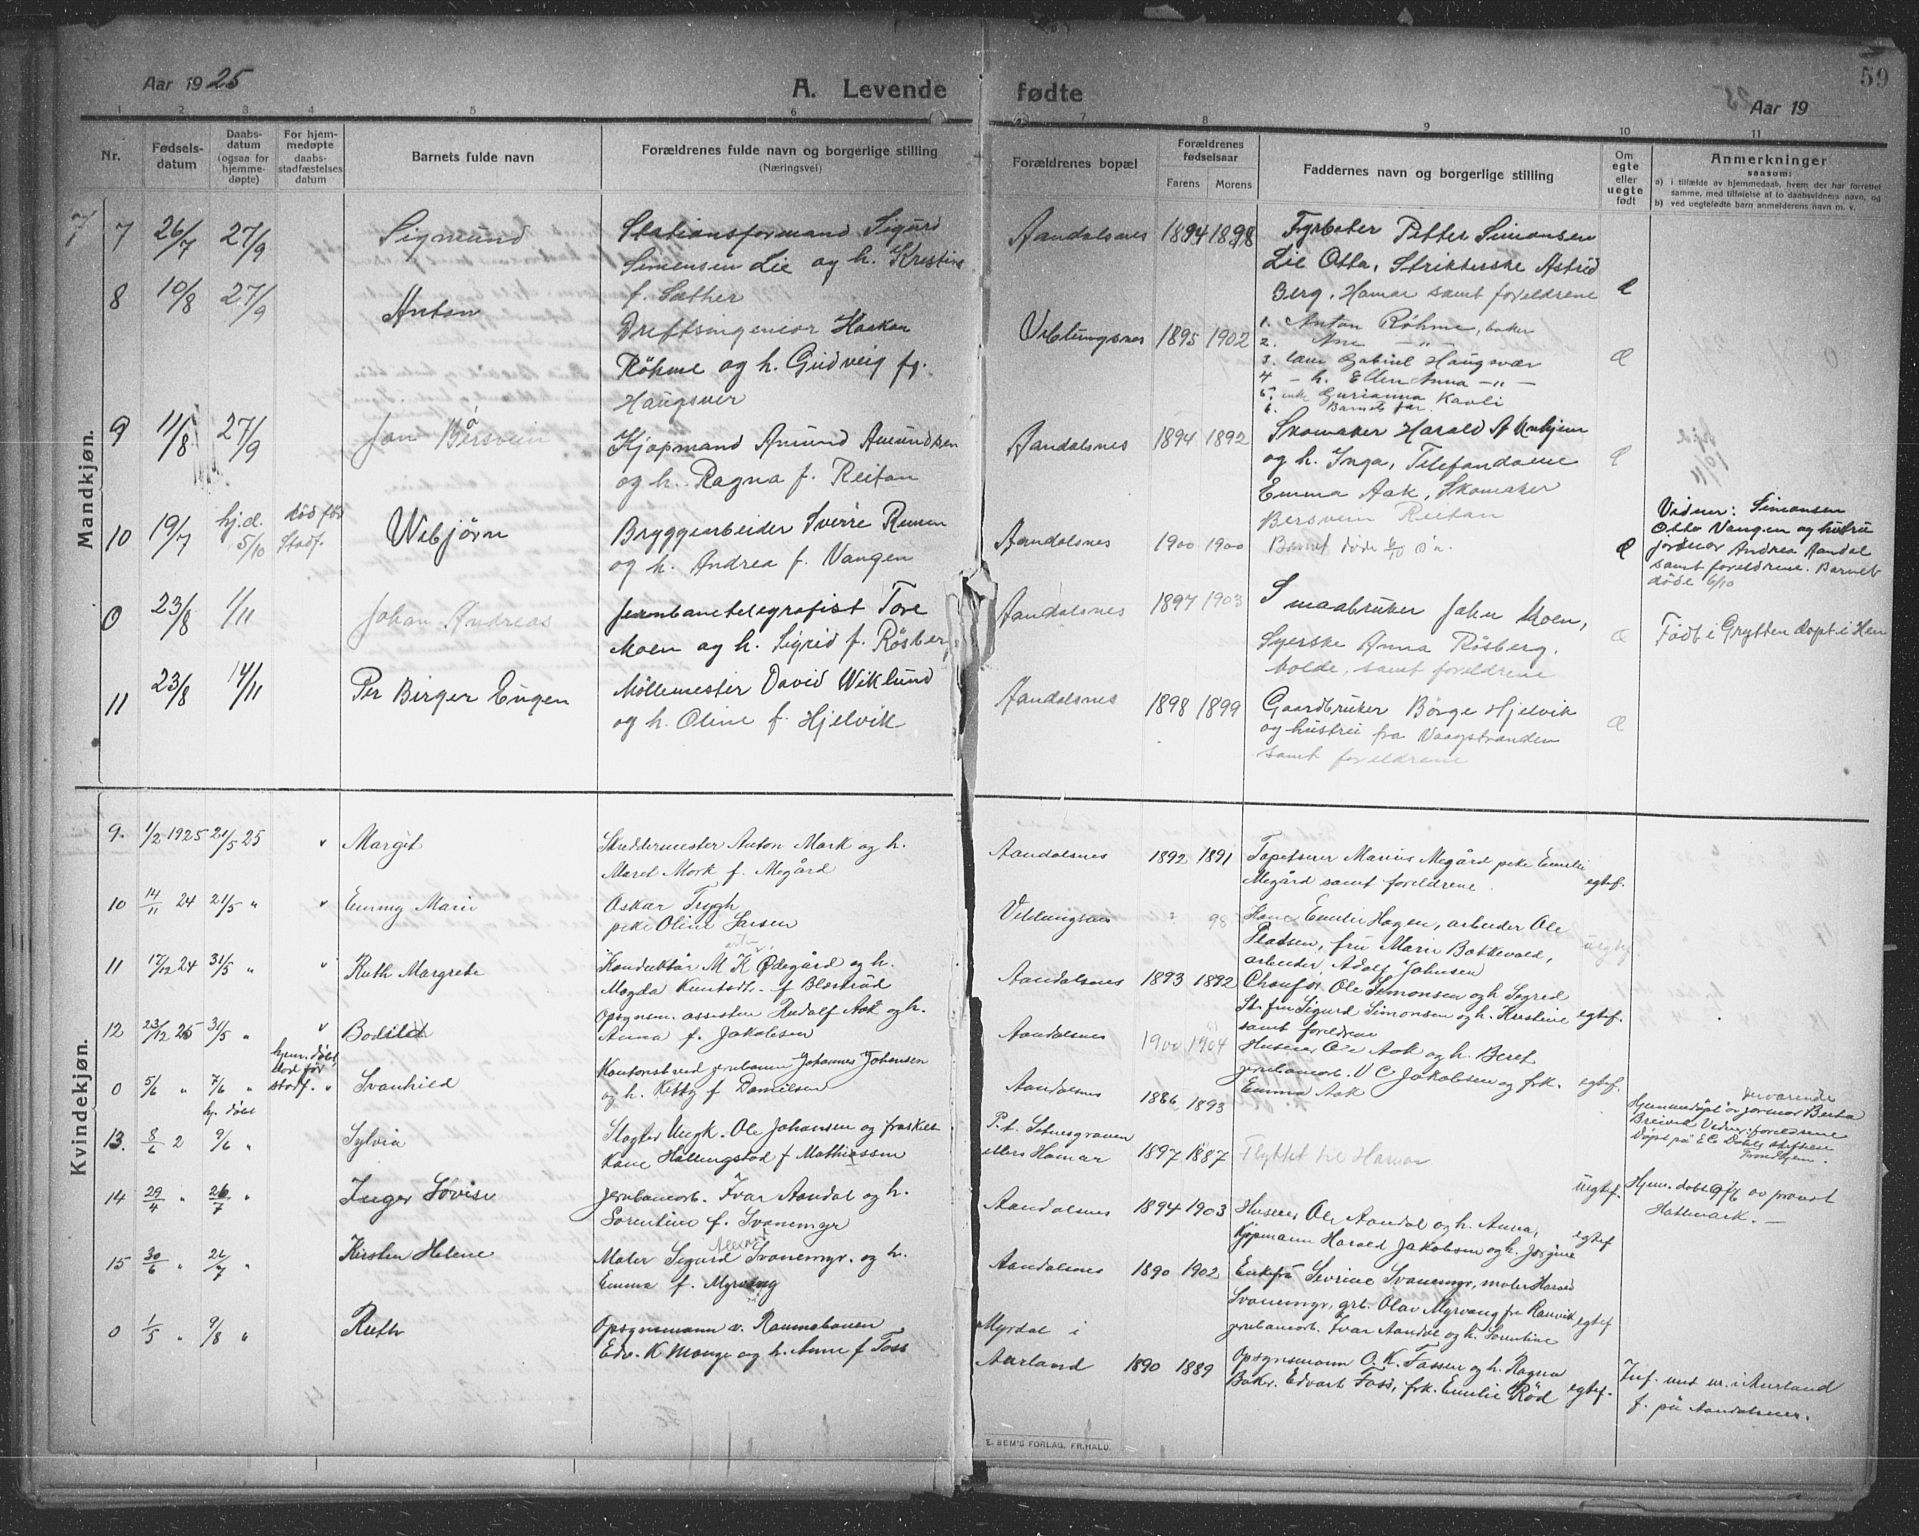 59
Aar 1925 A. Levende fødte Aar 19
1 2 3 4 5 6 7 8 9 10 11
Nr. Fødsels-datum Daabs-datum (ogsaa for hjemme-døpte) For hjem-medøpte daabs-stadfæstelses datum Barnets fulde navn Forældrenes fulde navn og borgerlige stilling (Næringsvei) Forældrenes bopæl Forældrenes fødselsaar Farens Morens Faddernes navn og borgerlige stilling Om egte eller uegte født Anmerkninger saasom:
a) i tilfælde av hjemmedaab, hvem der har forrettet samme, med tilføielse af to daabsvidners navn, og
b) ved uegtefødte barn anmelderens navn m. v.
Mandkjøn.
7 7 26/7 27/9 Sigmund Stationsformand Sigurd Aandalsnes 1894 1898 Fyrbøter Petter Simonsen
Simensen Lie og h. Kristine Lie Otta, Strikkerske Astrid
f. Sæther Berg, Hamar samt foreldrene
8 10/8 27/9 Anton Driftsingeniør Haakon Veblungsnes 1895 1902 1. Anton Röhme, baker
2. Ane — " —
Röhme og h. Gudveig f. 3. Gabriel Haugsvær Æ
4 — h. Ellen Anna — " —
Haugsvær 5. Gurianna Kavli
6. Barnets far.
9 11/8 27/9 Jan Bersvein Kjøpmand Amund Amundsen Aandalsnes 1894 1892 Skomaker Harald
og h. Ragna f. Reitan og h. Inga, Telefondame
Emma Aak, Skomaker
Bersvein Reitan
10 19/7 hj.d. 5/10 død før Stadf. Webjørn Bryggearbeider Sverre Aandalsnes 1900 1900 Barnet døde 6/10
og h. Andrea f. Vangen
Vidner: Simonsen
Otto Vangen og hustru
jordmor Andrea Aandal
samt foreldrene. Barnet
døde 6/10
0 23/8 1/11 Johan Andreas Jernbanetelegrafist Tore Aandalsnes 1897 1903 Smaabruker John Moen, Æ Født i Grytten døpt i Hen
Moen og h. Sigrid f. Rösberg Syerske Anna Rösberg.
Molde, samt foreldrene
11 23/8 14/11 Per Birger Eugen Møllemester David Wiklund Aandalsnes 1898 1899 Gaardbruker Børge Hjelvik Æ
og h. Oline f. Hjelvik og hustru fra Vaagstranden
samt foreldrene
Kvindekjøn.
9. 1/2 1925 21/5 25 " Margit Skreddermester Anton Mork og h. Aandalsnes 1892 1891 Tapetserer Marius Megård pike Emilie
Maret Mork f. Megård Megård samt foreldrene. egtef.
10 14/11 24 21/5 " " Emmy Marie Oskar Trygh Veblungsnes 98 Emilie Hagen, arbeider Ole
pike Oline Larsen Pladsen, fru Marie Bakkevold, uegtef.
arbeider Adolf Johnsen
11 17/12 24 31/5 " " Ruth Margrete Konduktör M K Ødegård og h. Aandalsnes 1893 1892 Chaufør Ole Simonsen og h Sigrid
Magda Knutsdt. f Blæstrud St. fm Sigurd Simonsen og h. Kristine egtef.
samt foreldrene
12 23/12 25 31/5 " " Bodild Opsynsm. assistent Rudolf Aak og h. Aandalsnes 1900 1904 Huseier Ole Aak og h. Beret
Anna f. Jakobsen jernbanearb. V C Jakobsen og frk. egtef.
Emma Aak
0 5/6 " 7/6 hj. døbt hjem. døbt død før stadf. " Svanhild Kontorist ved jernbanen Johannes Johansen Aandalsnes 1886 1893
og h. Kitty f Danielsen
Hjemmedøpt av jordmor Berta
Breivik Vidner: foreldrene
Døpt på E.C. Dahls stiftelse
Trondhjem.
13. 8/6 2 9/6 Sylvia Slagter Ungk. Ole Johansen og fraskilt P. t. 1897 1887 Flyttet til Hamar uegtef. Hjem. døbt 9/6 av provst
Kone Hallingstad f Mathiassen ellers Hamar Hallmark. —
14 29/4 " 26/7 " Inger Lovise Jernbanearb. Ivar Aandal og h. Aandalsnes 1894 1903 Huseier Ole Aandal og h. Anna, egtef
Sorentine f. Svanemyr Kjøpmann Harald Jakobsen og h. Jorgine
15 30/6 " 26/7 " Kirsten Helene Maler Sigurd Svanemyr og h. Aandalsnes 1890 1902 Enkefru Sevrine Svanemyr, maler Harald
Emma f. Myrvang Svanemyr, grb. Olav Myrvang fra Rauvik egtef
jernbanearb. Ivar Aandal og h. Sorentine
0 1/5 " 9/8 " Ruth Opsynsmann v. Raumabanen Myrdal i
Edv. K Monge og h. Anne f Foss Aurland 1890 1889 Opsynsmann O. K. Fossen og h. Ragna
Baker Edvart Foss, frk. Emilie Röd egtef. i Aurland
f. på Aandalsnes.
E. SEM'S FORLAG, FR.HALD.